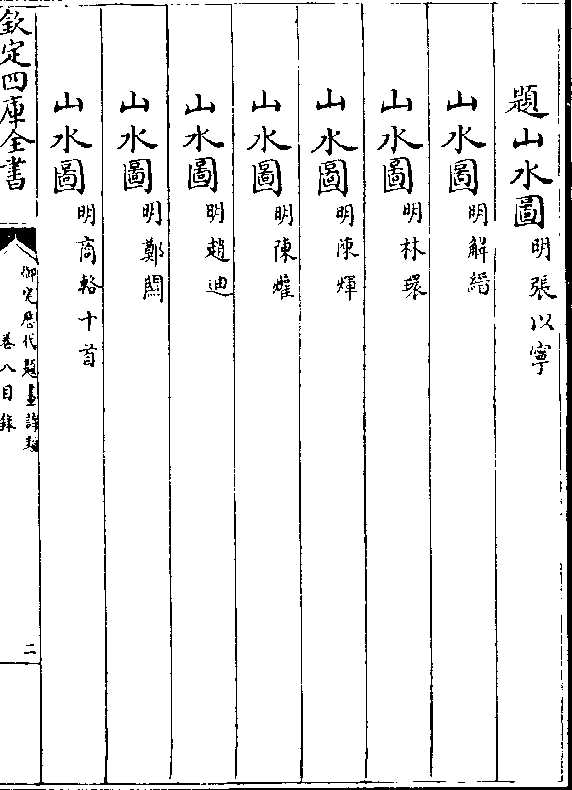 題山水圖明張以寧
山水圖明解縉
山水圖明林環
山水圖明陳煇
山水圖明陳爟
山水圖明趙迪
山水圖明鄭關
山水圖明商輅十首
欽定四庫全書
御定歷代題畫詩類
卷八目錄
二